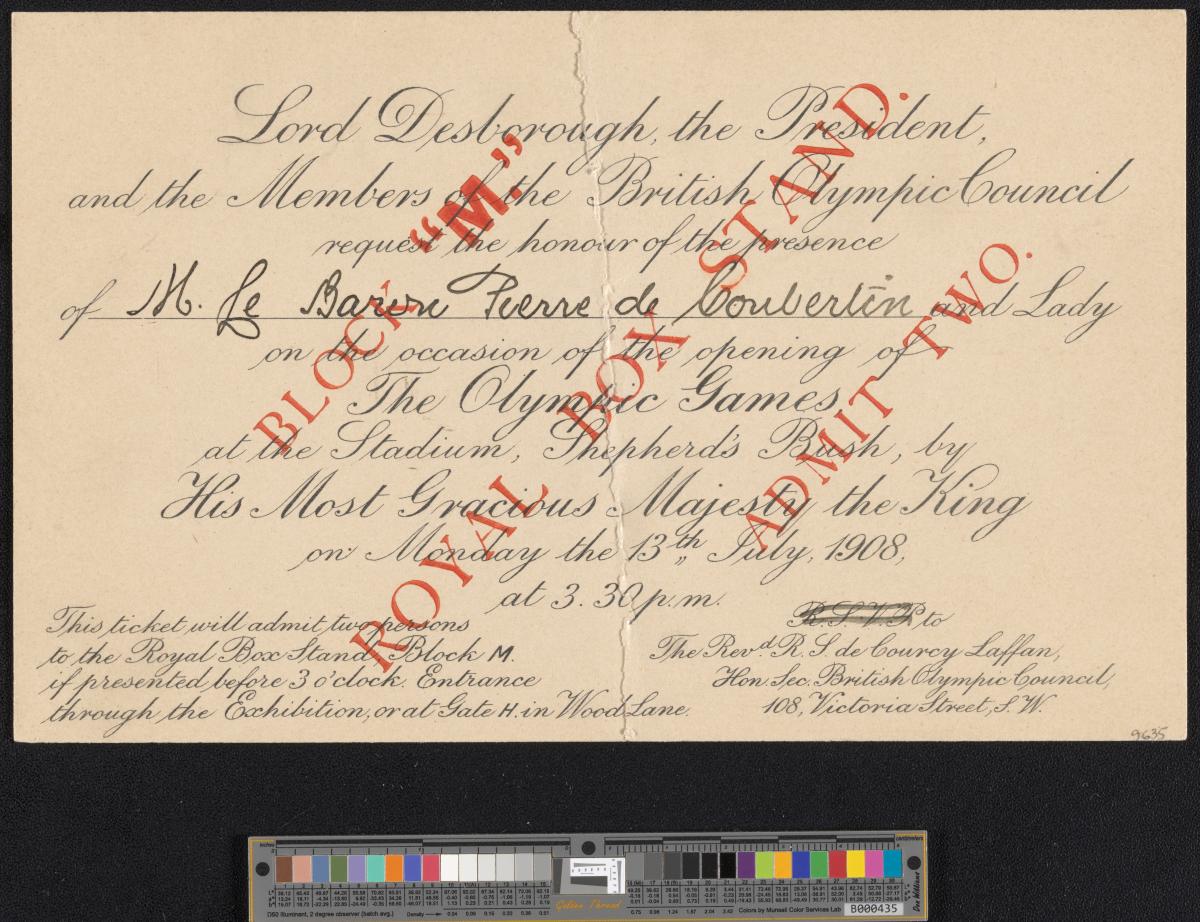 Lord Desborough, the President,
and the Members of the British Olympic Council
request the honour of the presence
of M. Le Baron Pierre de Coubertin and Lady
on the occasion of the opening of
The Olympic Games
at the Stadium, Shepherd's Bush, by
His Most Gracious Majesty the King
on Monday the 13th July, 1908,
at 3.30 p.m.
This ticket will admit two persons
to the Royal Box Stand, Block M.
if presented before 3 o'clock. Entrance
through the Exhibition, or at Gate H. in Wood Lane.
R.S.V.P. to
The Revd. R. S. de Courcy Laffan,
Hon. Sec. British Olympic Council,
108, Victoria Street, S.W.
BLOCK "M."
ROYAL BOX STAND.
ADMIT TWO.
9635
inches
centimeters
D50 Illuminant, 2 degree observer
Density
Golden Thread
Colors by Munsell Color Services Lab
B000435
Don Williams